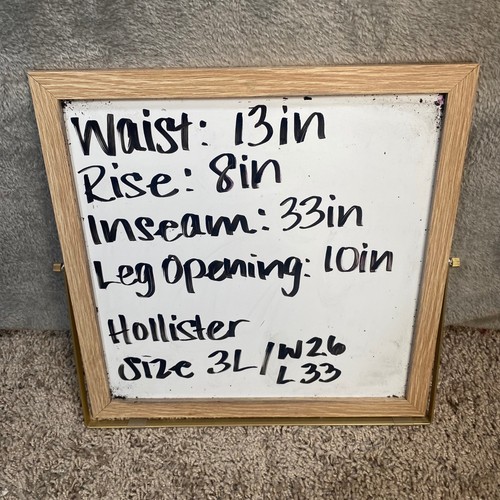 Waist: 13in
Rise: 8in
Inseam: 33in
Leg Opening: 10in
Hollister
Size 3L/W26
L33